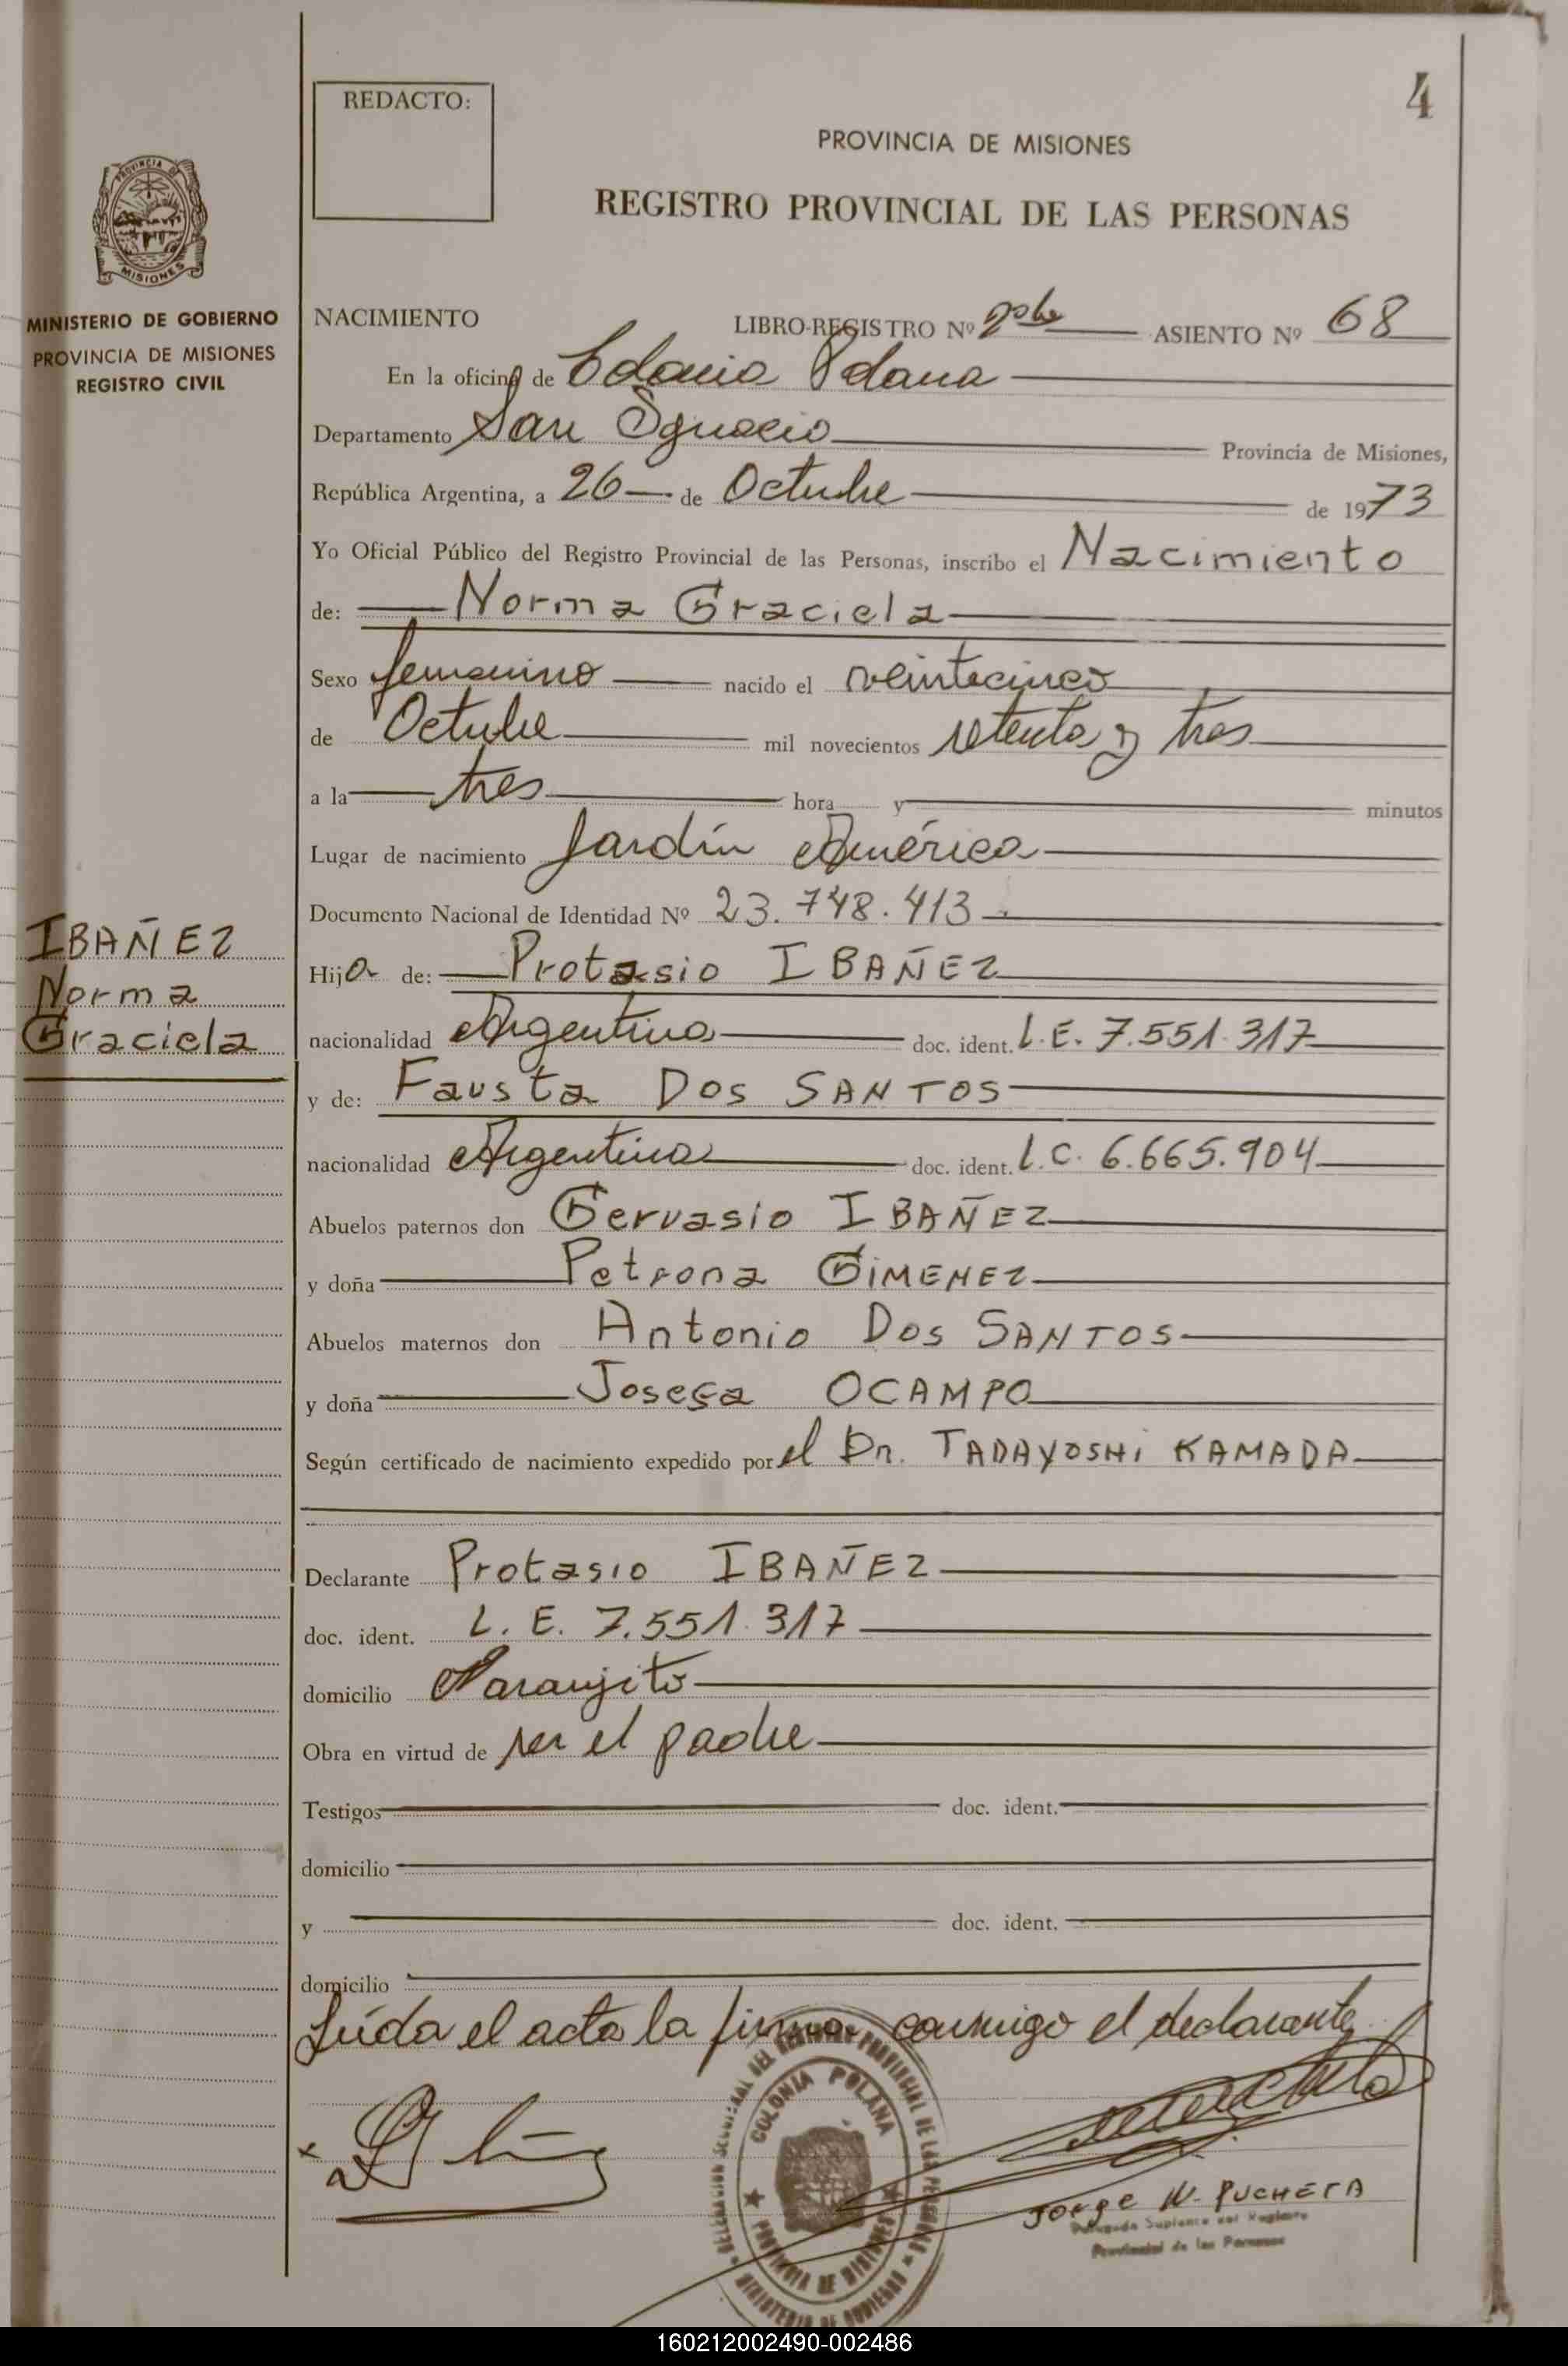 4
REDACTO:
PROVINCIA DE MISIONES
REGISTRO PROVINCIAL DE LAS PERSONAS
PROVINCIA DE
MISIONES
MINISTERIO DE GOBIERNO
PROVINCIA DE MISIONES
REGISTRO CIVIL
NACIMIENTO LIBRO-REGISTRO Nº ASIENTO Nº 68
En la oficina de Colonia Polana
Departamento San Ignacio Provincia de Misiones,
República Argentina, a 26 de Octubre de 1973
Yo Oficial Público del Registro Provincial de las Personas, inscribo el Nacimiento
de: Norma Graciela
Sexo femenino nacido el veinticinco
de Octubre mil novecientos setenta y tres
a la tres hora y minutos
Lugar de nacimiento Jardín América
Documento Nacional de Identidad Nº 23.748.413
IBAÑEZ
Norma
Graciela
Hija de: Protasio IBAÑEZ
nacionalidad Argentina doc. ident. L.E. 7.551.317
y de: Fausta DOS SANTOS
nacionalidad Argentina doc. ident. L.C. 6.665.904
Abuelos paternos don Gervasio IBAÑEZ
y doña Petrona GIMENEZ
Abuelos maternos don Antonio DOS SANTOS
y doña Josefa OCAMPO
Según certificado de nacimiento expedido por el Dr. TADAYOSHI KAMADA
Declarante Protasio IBAÑEZ
doc. ident. L. E. 7.551.317
domicilio Naranjito
Obra en virtud de ser el padre
Testigos doc. ident.
domicilio
y doc. ident.
domicilio
Leída el acta la firma conmigo el declarante
COLONIA POLANA
PROVINCIA DE MISIONES
MINISTERIO DE GOBIERNO
Jorge W. PUCHETA
Delegado Suplente del Registro
Provincial de las Personas
160212002490-002486